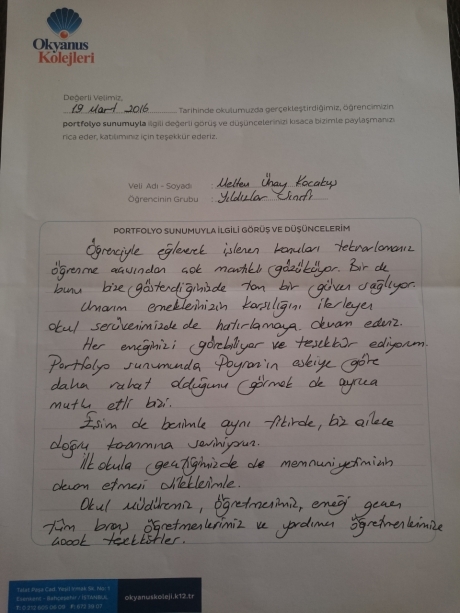 Okyanus
Kolejleri
Değerli Velimiz,
19 Mart 2016 Tarihinde okulumuzda gerçekleştirdiğimiz, öğrencimizin
portfolyo sunumuyla ilgili değerli görüş ve düşüncelerinizi kısaca bizimle paylaşmanızı
rica eder, katılımınız için teşekkür ederiz.
Veli Adı - Soyadı : Meltem Ünay Kocabaş
Öğrencinin Grubu : Yıldızlar Sınıfı
PORTFOLYO SUNUMUYLA İLGİLİ GÖRÜŞ VE DÜŞÜNCELERİM
Öğrenciyle eğlenerek işlenen konuları tekrarlamanız
öğrenme açısından çok mantıklı gözüküyor. Bir de
bunu bize gösterdiğinizde tam bir güven sağlıyor.
Umarım emeklerinizin karşılığını ilerleyen
okul serüvenimizde de hatırlamaya devam ederiz.
Her emeğinizi görebiliyor ve teşekkür ediyorum.
Portfolyo sunumunda Poyraz'ın eskiye göre
daha rahat olduğunu görmek de ayrıca
mutlu etti bizi.
Eşim de benimle aynı fikirde, biz ailece
doğru kararımıza seviniyoruz.
İlkokula geçtiğimizde de memnuniyetimizin
devam etmesi dileklerimle.
Okul müdüremiz, öğretmenimiz, emeği geçen
tüm branş öğretmenlerimiz ve yardımcı öğretmenlerimize
çoook teşekkürler.
okyanuskoleji.k12.tr